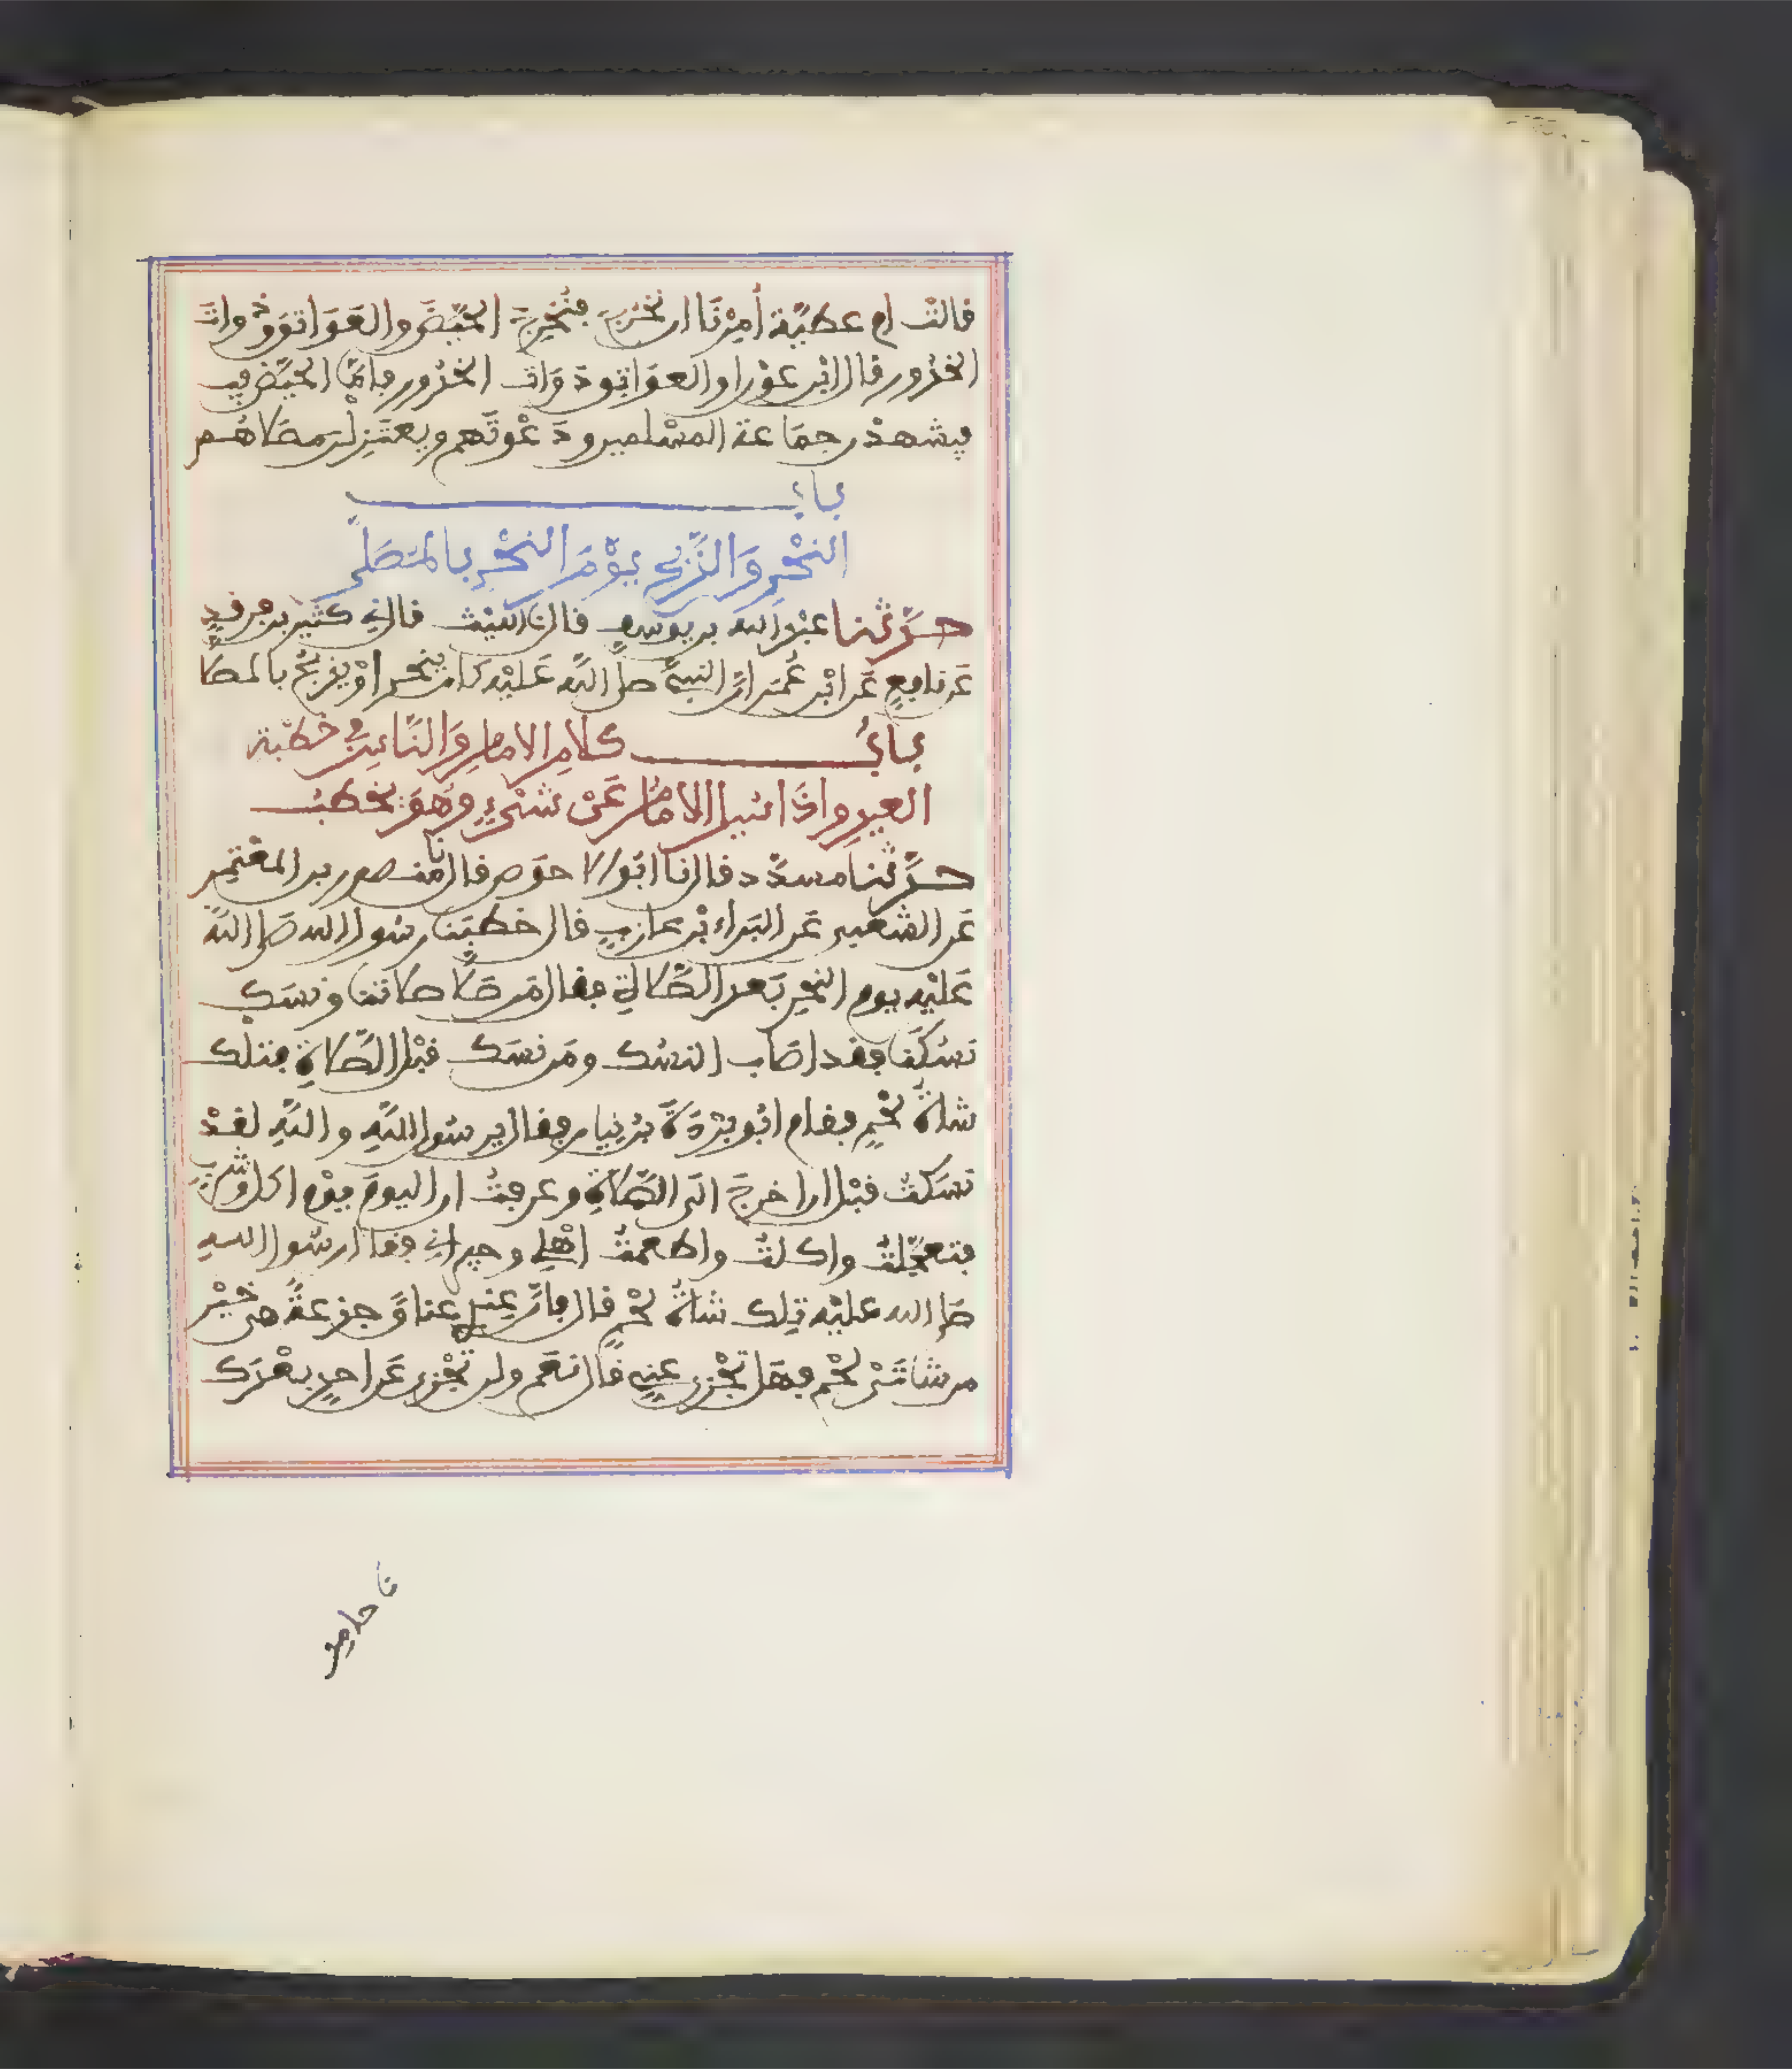 قالت ام عطيّة أمِرْنَا ان نخرج فنُخْرِجَ الحُيَّضَ والعَوَاتق وذوات
الخدور قال ابن عوْن او العوَاتق ذوَات الخدور فامّا الحُيّض في
فيشهدن جمَاعة المسْلمين ودَعْوتَهم ويعتَزِلْن مصلاهم
باب
النحْرِ وَالذَّبح يوْمَ النحْرِ بالمُصَلّى
حدّثنا عبْد الله بن يوسف قال نا الليْث قال ني كثير بن فرقد
عَن نافعٍ عَن ابْن عُمَر انّ النبيّ صلّ اللّه عَليْه كان ينحر اوْ يذبحُ بالمصلا
بابُ كلامِ الامام وَالنّاسِ في خطبة
العيدِ واذَا سُئل الامَامُ عَنْ شَيْءٍ وهُوَ يخطبُ
حدّثنا مسدّد قال نا ابُو الاحوَص قال نا منصور بن المعْتَمِر
عَن الشعبي عَن البَراء بْن عازبٍ قال خطبَنا رسُول الله صَلى اللّه
عَليْه يوم النحْرِ بَعد الصّلاة فقال مَن صَلّا صلاتنا ونسَك
نسُكَنَا فقد اصَاب النسُك ومَن نسَك قبْل الصّلاةِ فتلك
شاةُ لحْمٍ فقام ابُو بُرْدَةَ بْن نِيار فقال يرسُول اللّهِ واللّهِ لقدْ
نسَكتُ قبْل ان اخرجَ الى الصّلاةِ وعرفتُ ان اليومَ يوْم اكل وشربٍ
فتعجّلتُ واكلتُ واطعمتُ اهْلي وجيراني فقال رسُول الله
صَلى الله عليْه تِلك شاةُ لحْمٍ قال فانّ عِنْدي عناقَ جذعةً هي خيْر
من شاتَىْ لحْم فهَل تجْزي عنّي قال نعَم ولن تجْزي عَن احدٍ بعْدَك
نا حامد